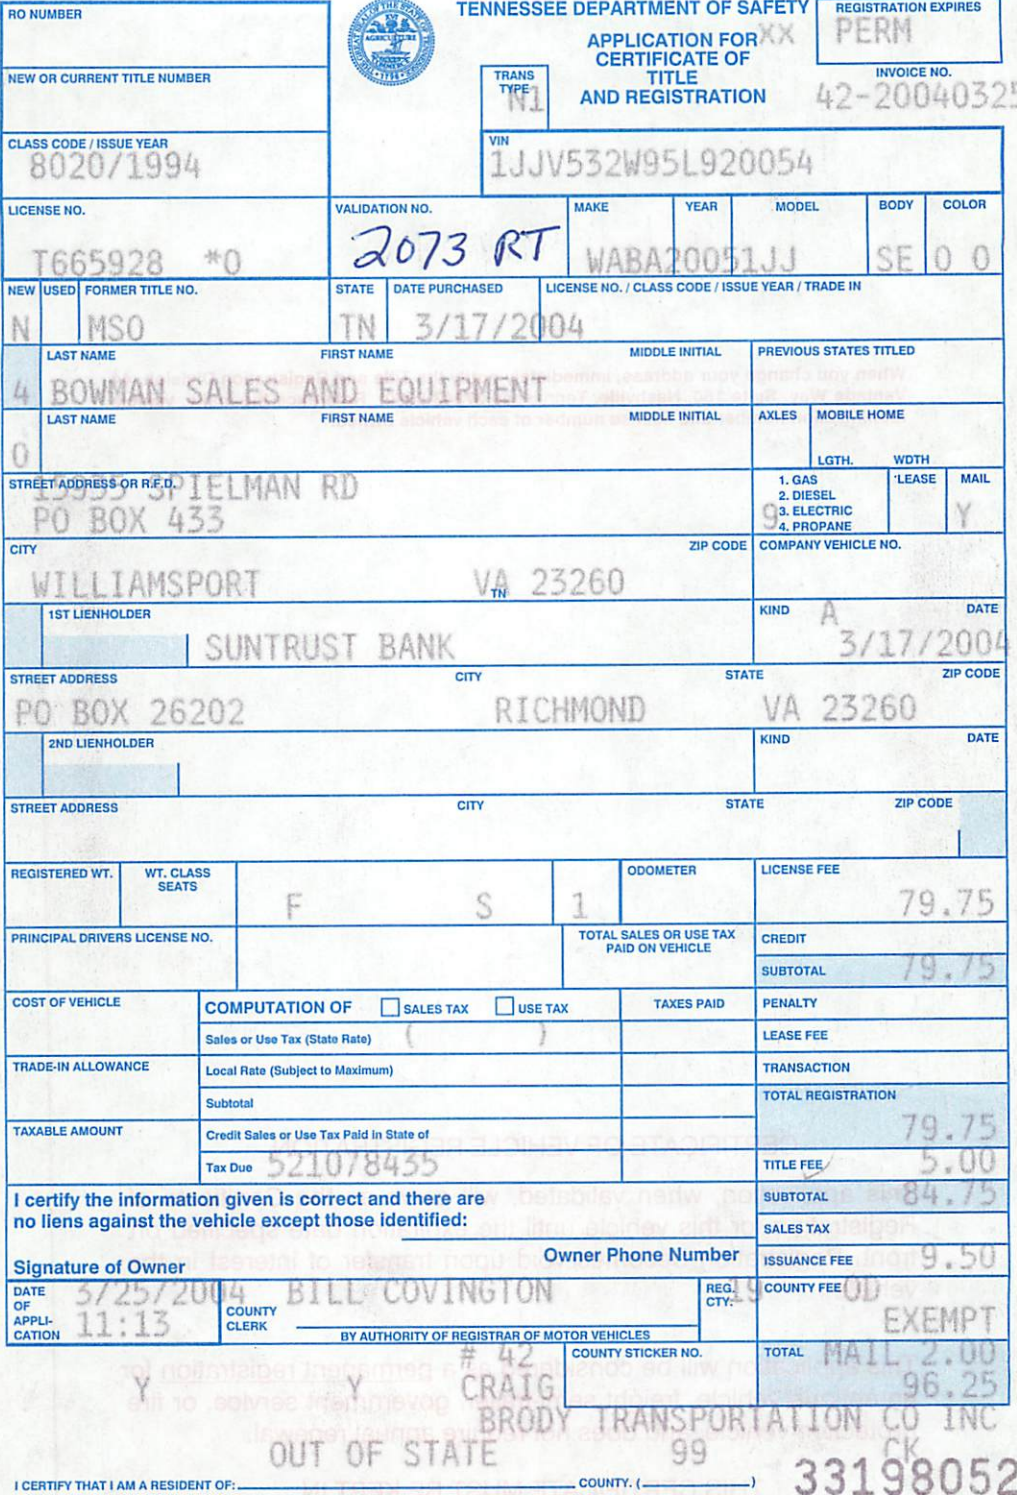 RO NUMBER
TENNESSEE DEPARTMENT OF SAFETY
REGISTRATION EXPIRES
APPLICATION FOR XX PERM
CERTIFICATE OF
TITLE
AND REGISTRATION
AGRICULTURE
COMMERCE
1796
NEW OR CURRENT TITLE NUMBER
TRANS TYPE
N1
INVOICE NO.
42-20040325
CLASS CODE / ISSUE YEAR
8020/1994
VIN
1JJV532W95L920054
LICENSE NO. VALIDATION NO. MAKE YEAR MODEL BODY COLOR
T665928 *0 2073 RT WABA20051JJ SE 0 0
NEW USED FORMER TITLE NO. STATE DATE PURCHASED LICENSE NO. / CLASS CODE / ISSUE YEAR / TRADE IN
N MSO TN 3/17/2004
LAST NAME FIRST NAME MIDDLE INITIAL PREVIOUS STATES TITLED
4 BOWMAN SALES AND EQUIPMENT
LAST NAME FIRST NAME MIDDLE INITIAL AXLES MOBILE HOME
0
LGTH. WDTH
STREET ADDRESS OR R.F.D.
SPIELMAN RD
PO BOX 433
1. GAS
2. DIESEL
3. ELECTRIC
4. PROPANE
9
*LEASE MAIL
Y
CITY ZIP CODE COMPANY VEHICLE NO.
WILLIAMSPORT VA TN 23260
1ST LIENHOLDER KIND A DATE
SUNTRUST BANK 3/17/2004
STREET ADDRESS CITY STATE ZIP CODE
PO BOX 26202 RICHMOND VA 23260
2ND LIENHOLDER KIND DATE
STREET ADDRESS CITY STATE ZIP CODE
REGISTERED WT. WT. CLASS SEATS ODOMETER LICENSE FEE
F S 1 79.75
PRINCIPAL DRIVERS LICENSE NO. TOTAL SALES OR USE TAX PAID ON VEHICLE CREDIT
SUBTOTAL 79.75
COST OF VEHICLE COMPUTATION OF SALES TAX USE TAX TAXES PAID PENALTY
Sales or Use Tax (State Rate) ( ) LEASE FEE
TRADE-IN ALLOWANCE Local Rate (Subject to Maximum) TRANSACTION
Subtotal TOTAL REGISTRATION
79.75
TAXABLE AMOUNT Credit Sales or Use Tax Paid in State of
Tax Due 521078435 TITLE FEE 5.00
I certify the information given is correct and there are
no liens against the vehicle except those identified:
SUBTOTAL 84.75
SALES TAX
Signature of Owner Owner Phone Number ISSUANCE FEE 9.50
DATE OF APPLI-CATION 3/25/2004 11:13
COUNTY CLERK BILL COVINGTON
BY AUTHORITY OF REGISTRAR OF MOTOR VEHICLES
REG. CTY. 19 COUNTY FEE OD
EXEMPT
# 42 COUNTY STICKER NO. TOTAL MAIL 2.00
Y Y CRAIG 96.25
BRODY TRANSPORTATION CO INC
OUT OF STATE 99 CK
33198052
I CERTIFY THAT I AM A RESIDENT OF: COUNTY. ( )